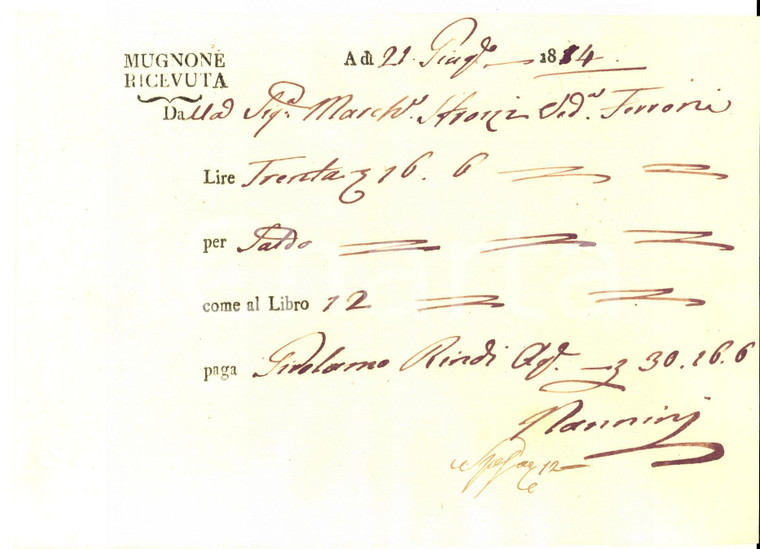 MUGNONE
RICEVUTA
A dì 21 Giug.o 1814
Dalla Sig.a March.a Strozzi Ved.a Ferroni
Lire Trenta 16. 6
per Saldo
come al Libro 12
paga Girolamo Rindi Ag.e 30.16.6
Nannini